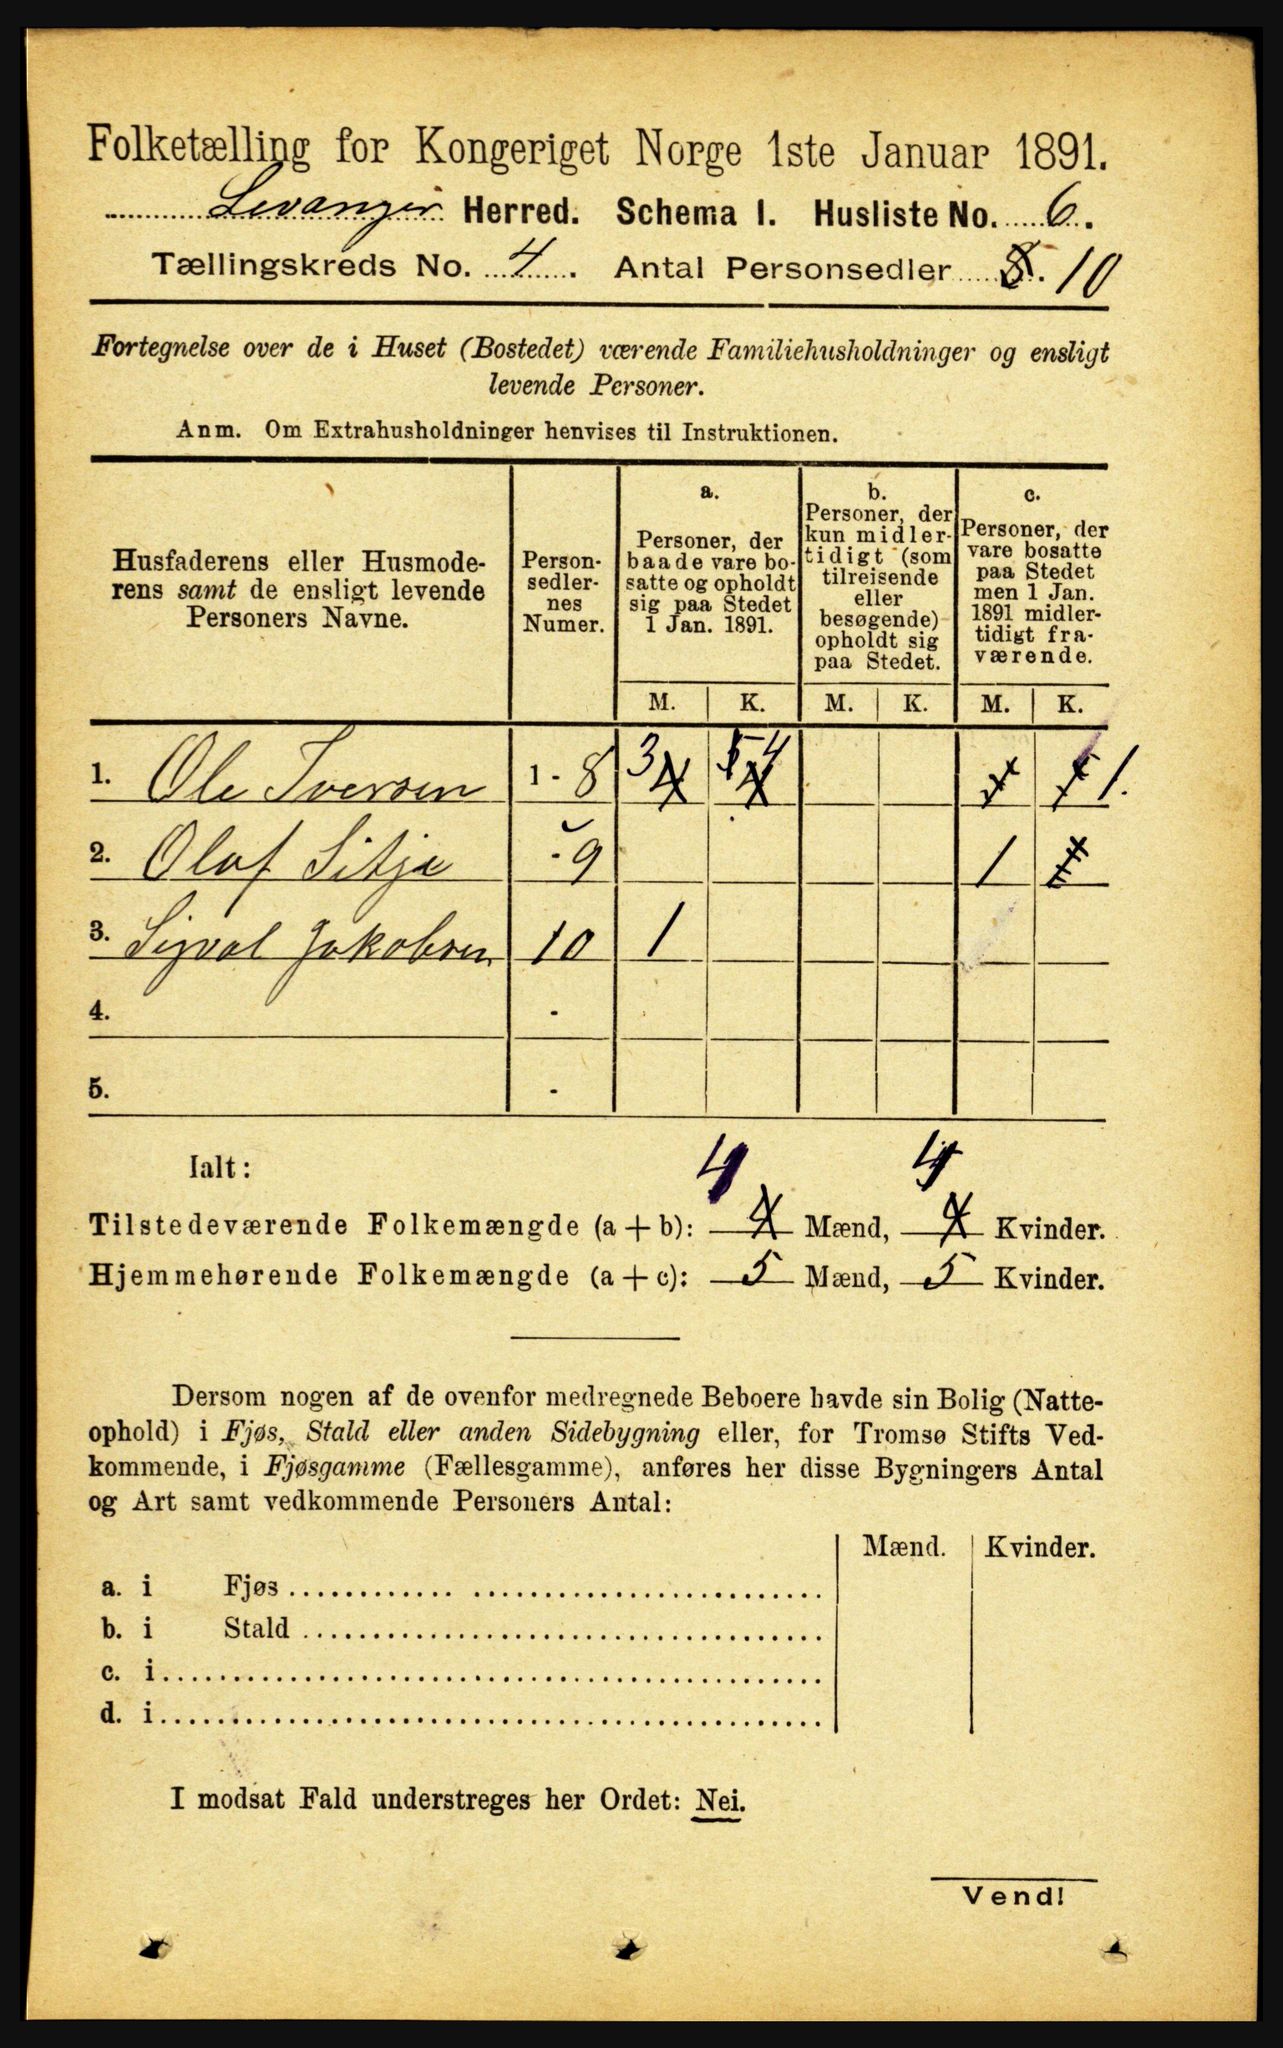 Folketælling for Kongeriget Norge 1ste Januar 1891.
Levanger Herred. Schema I. Husliste No. 6.
Tællingskreds No. 4. Antal Personsedler 8. 10
Fortegnelse over de i Huset (Bostedet) værende Familiehusholdninger og ensligt
levende Personer.
Anm. Om Extrahusholdninger henvises til Instruktionen.
Husfaderens eller Husmode-
rens samt de ensligt levende
Personers Navne.
Person-
sedler-
nes
Numer.
a.
Personer, der
baade vare bo-
satte og opholdt
sig paa Stedet
1 Jan. 1891.
b.
Personer, der
kun midler-
tidigt (som
tilreisende
eller
besøgende)
opholdt sig
paa Stedet.
c.
Personer, der
vare bosatte
paa Stedet
men 1 Jan.
1891 midler-
tidigt fra-
værende.
M. K. M. K. M. K.
1. Ole Iversen 1 - 8 3 4 5 4 4 1 1 1.
2. Olaf Sitje - 9 1
3. Sigval Jakobsen 10 1
4. -
5. -
Ialt: 4 4
Tilstedeværende Folkemængde (a + b): 4 Mænd, 4 Kvinder.
Hjemmehørende Folkemængde (a + c): 5 Mænd, 5 Kvinder.
Dersom nogen af de ovenfor medregnede Beboere havde sin Bolig (Natte-
ophold) i Fjøs, Stald eller anden Sidebygning eller, for Tromsø Stifts Ved-
kommende, i Fjøsgamme (Fællesgamme), anføres her disse Bygningers Antal
og Art samt vedkommende Personers Antal:
Mænd. Kvinder.
a. i Fjøs
b. i Stald
c. i
d. i
I modsat Fald understreges her Ordet: Nei.
Vend!